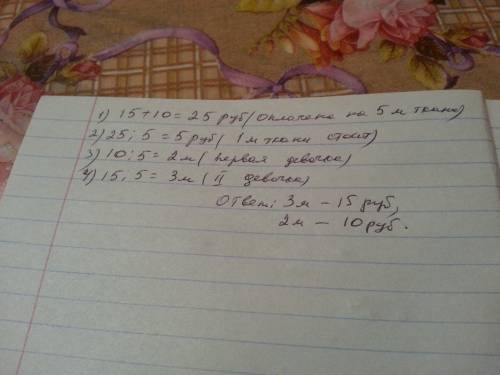 1) 15+10=25 руб (оплачено на 5 м ткани)
2) 25:5=5 руб (1 м ткани стоит)
3) 10:5=2м (первая девочка)
4) 15:5=3м (II девочка)
Ответ: 3м – 15 руб,
2м – 10 руб.